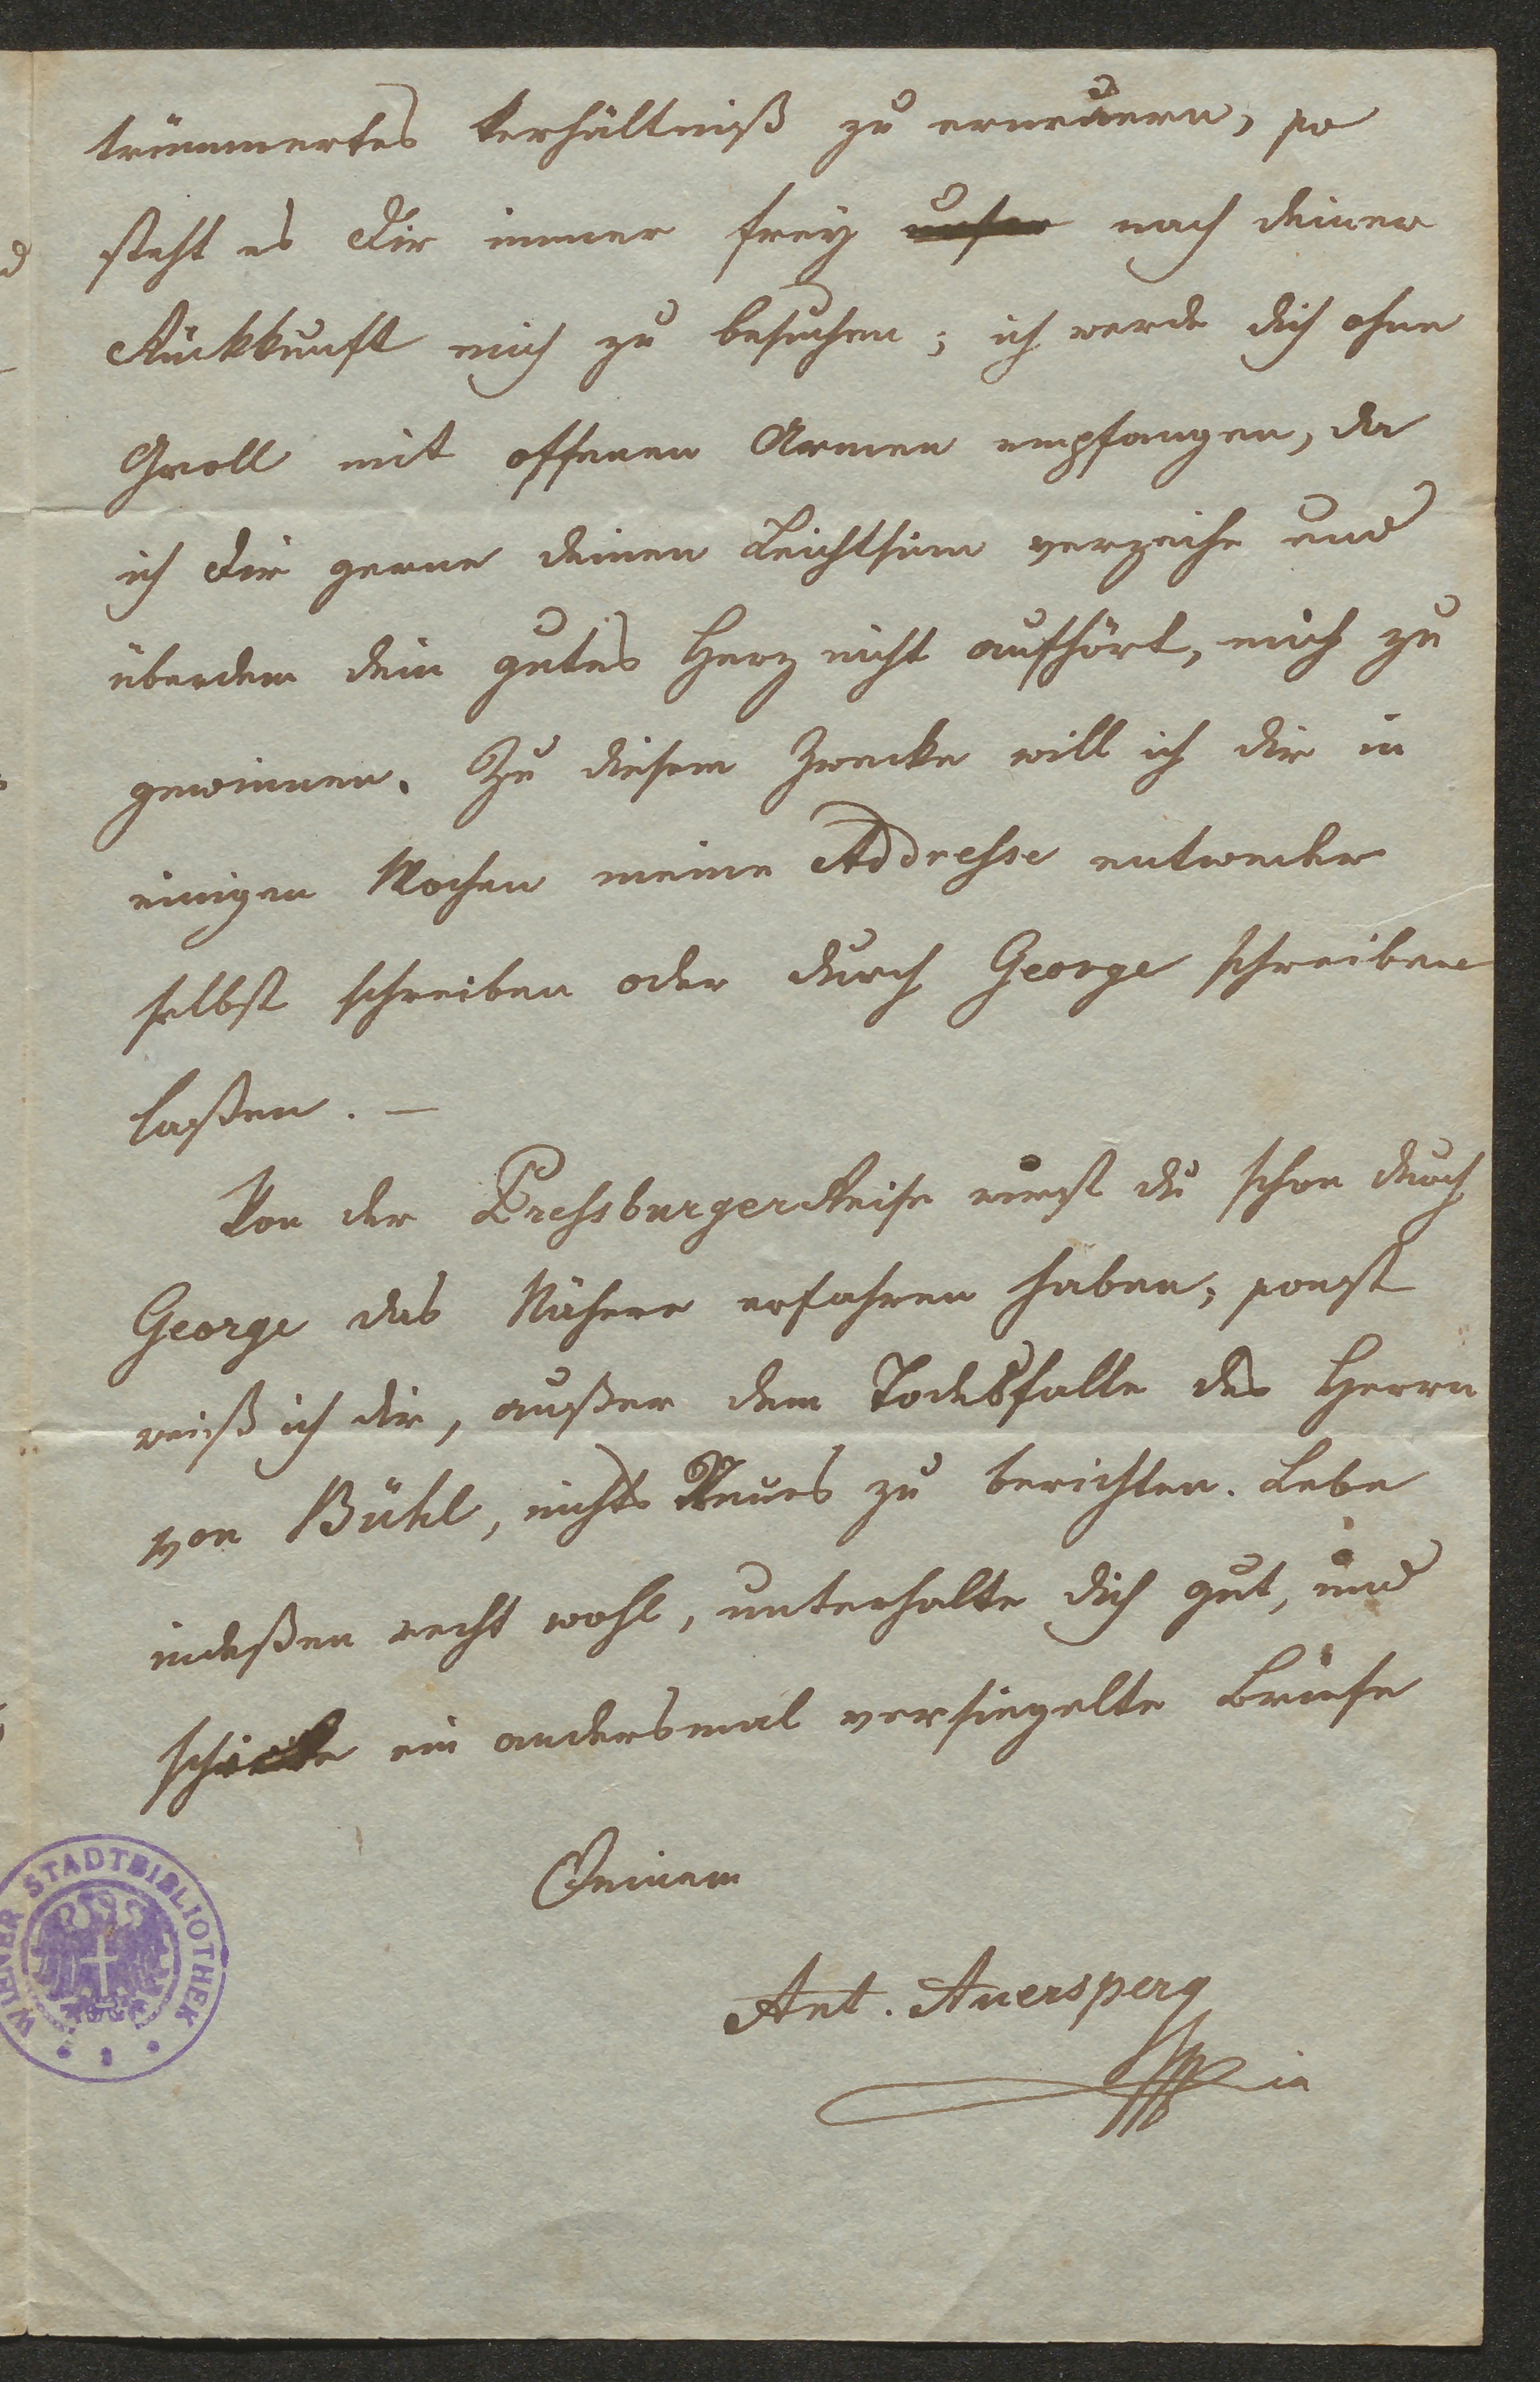 trümmertes Verhältniß zu erneuern, so
steht es Dir immer frey unser nach deiner
Rückkunft mich zu besuchen; ich werde dich ohne
Groll mit offenen Armen empfangen, da
ich Dir gerne deinen Leichtsinn verzeihe und
überdem dein gutes Herz nicht aufhört, mich zu
gewinnen. Zu diesem Zwecke will ich dir in
einigen Wochen meine Addresse entweder
selbst schreiben oder durch George schreiben
laßen. —
Von der Pressburger Reise wirst du schon durch
George das Nähere erfahren haben; sonst
weiß ich dir, außer dem Todesfalle des Herrn
von Bühl, nichts Neues zu berichten. Lebe
indeßen recht wohl, unterhalte dich gut, und
schicke ein andersmal versiegelte Briefe
Deinem
Ant. Auersperg
WIENER STADTBIBLIOTHEK